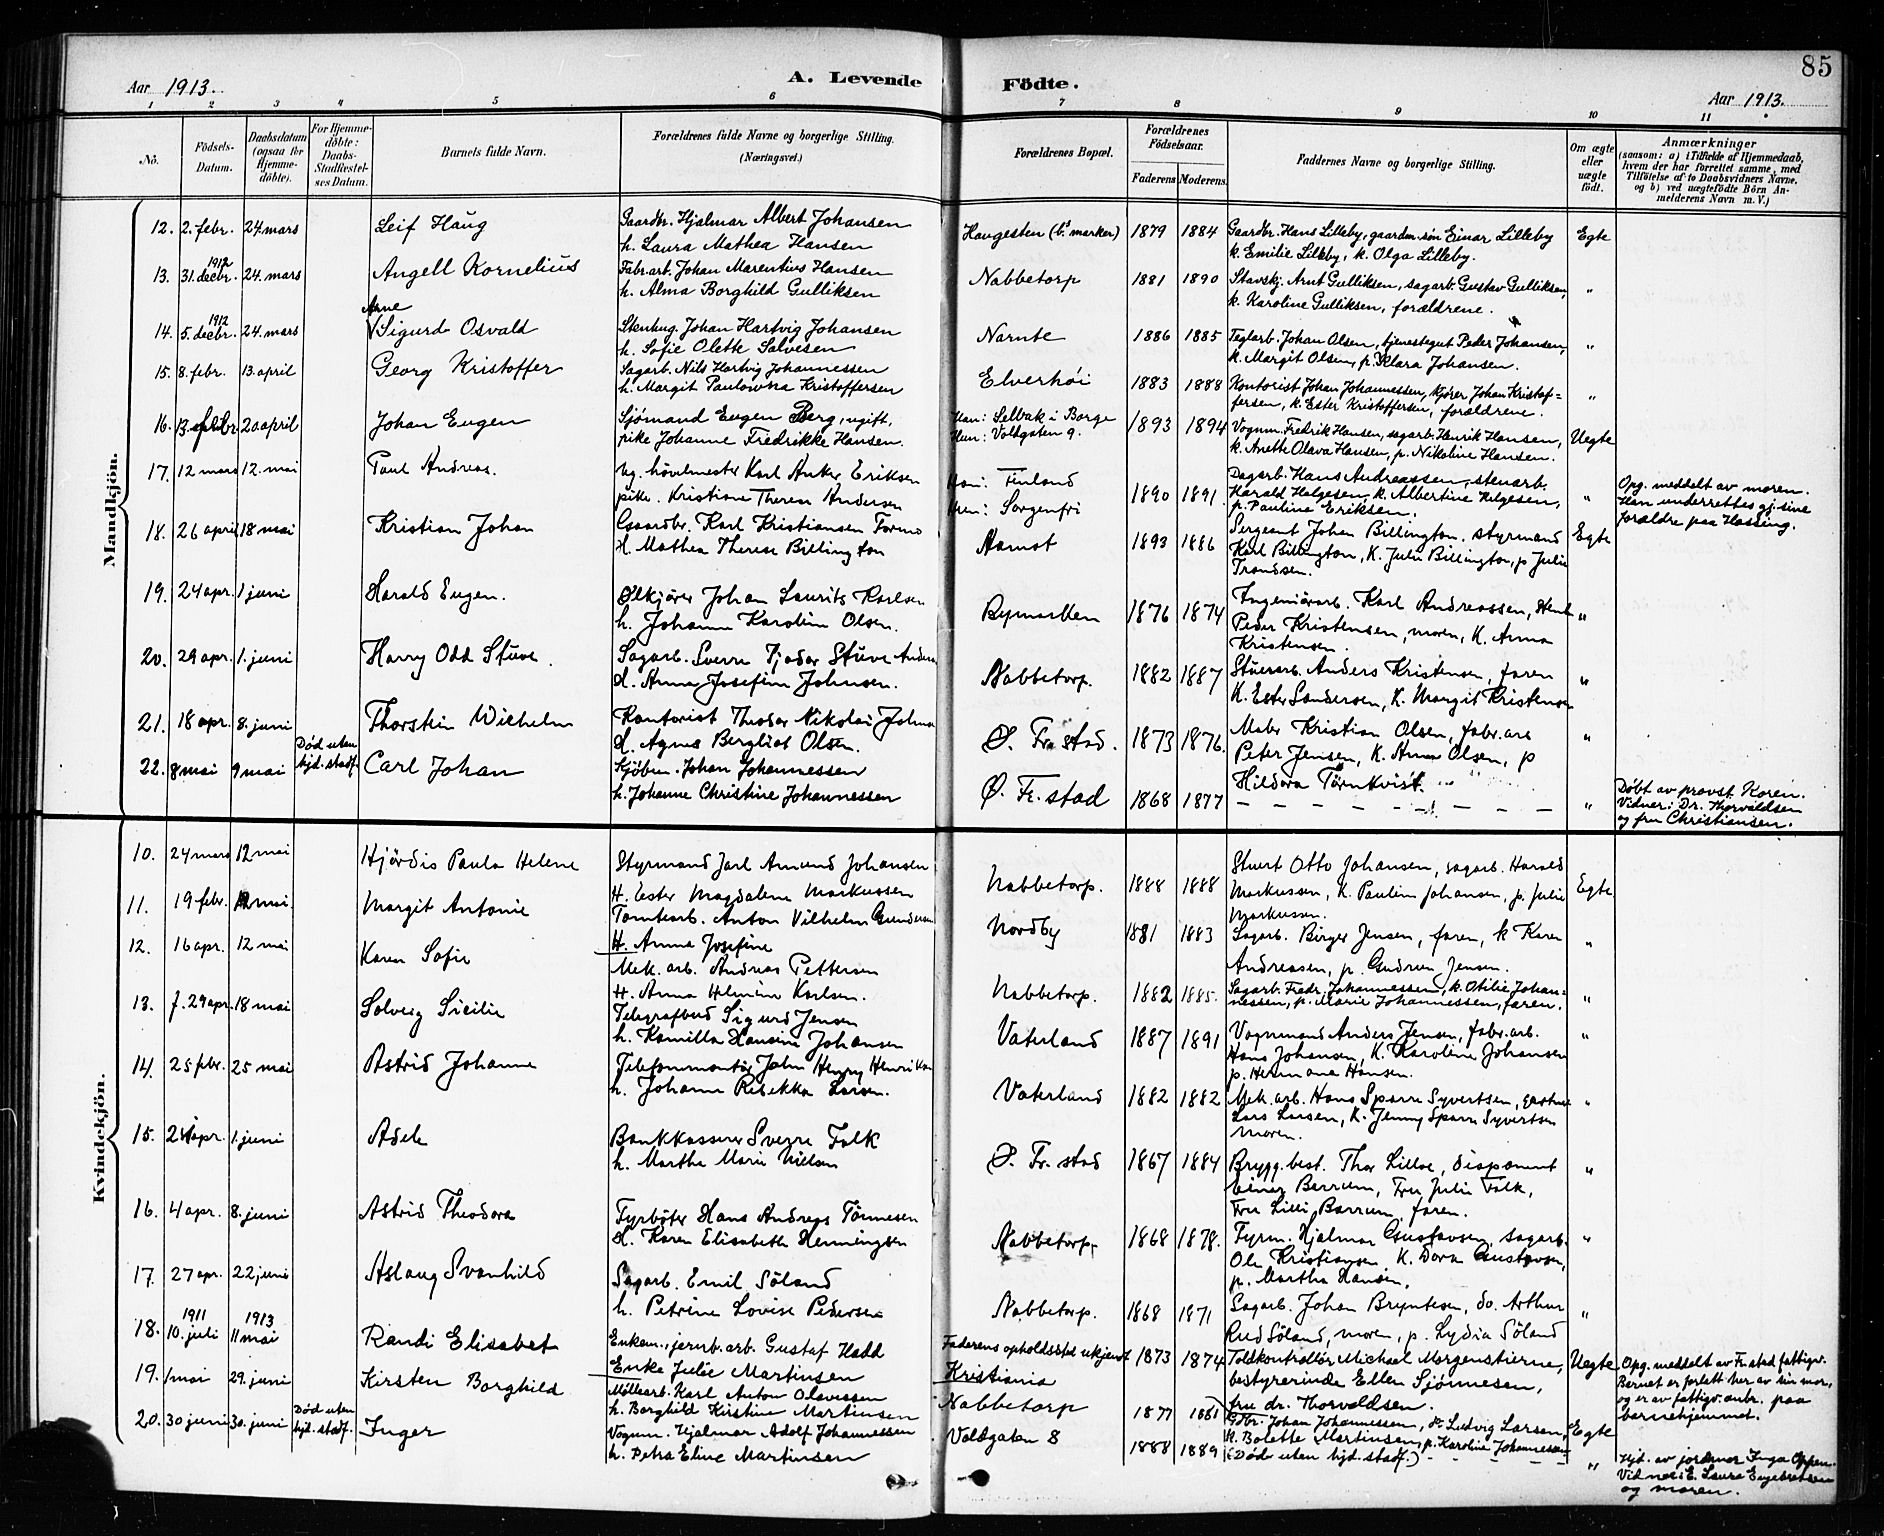 85
Aar 1913.
A. Levende Födte.
Aar 1913.
1 2 3 4 5 6 7 8 9 10 11
No.
Födsels-Datum.
Daabsdatum (ogsaa for Hjemme-döbte).
For Hjemme-döbte: Daabs-Stadfæstel-ses Datum.
Barnets fulde Navn.
Forældrenes fulde Navne og borgerlige Stilling. (Næringsvei.)
Forældrenes Bopæl.
Forældrenes Födselsaar.
Faderens Moderens.
Faddernes Navne og borgerlige Stilling.
Om ægte eller uægte födt.
Anmærkninger
(saasom: a) i Tilfælde af Hjemmedaab, hvem der har forrettet samme, med Tilföielse af to Daabsvidners Navne, og b) ved uægtefödte Börn An-melderens Navn m. V.)
Mandkjön.
12. 2. febr. 24. mars Leif Haug Gaardbr. Hjalmar Albert Johansen
h. Laura Mathea Hansen
Haugesten (b. marken) 1879 1884 Gaardbr. Hans Lilleby, gaardm. søn Einar Lilleby
k. Emilie Lilleby, k. Olga Lilleby. Egte
13. 1912 31. decbr. 24. mars Angell Kornelius Fabr.arb. Johan Marentius Hansen
h. Alma Borghild Gulliksen
Nabbetorp 1881 1890 Stavskj. Arnt Gulliksen, sagarb. Gustav Gulliksen,
k. Karoline Gulliksen, forældrene. "
14. 1912 5. decbr. 24. mars Arne Sigurd Osvald Stenhug. Johan Hartvig Johansen
h. Sofie Olette Salvesen
Narnte 1886 1885 Teglarb. Johan Olsen, tjenestegut Peder Johansen,
k. Margit Olsen, p. Klara Johansen. "
15. 8. febr. 13. april Georg Kristoffer Sagarb. Nils Hartvig Johannessen
h. Margit Paulovna Kristoffersen
Elverhöi 1883 1888 Kontorist Johan Johannessen, kjører Johan Kristof=
fersen, k. Ester Kristoffersen, forældrene. "
16. 13. febr. 20. april Johan Eugen Sjømand Eugen Berg, ugift,
pike Johanne Fredrikke Hansen.
Han: Selbak i Borge
Hun: Voldgaten 9. 1893 1894 Vognm. Fredrik Hansen, sagarb. Henrik Hansen,
k. Anette Olava Hansen, p. Nikoline Hansen. Uegte
17. 12 mars 12. mai Paul Andreas. ug. høvelmester Karl Anker Eriksen
pike. Kristiane Therese Andersen
Han: Finland
Hun: Sorgenfri 1890 1891 Dagarb. Hans Andreassen, stenarb.
Harald Helgesen, k. Albertine Helgesen,
p. Pauline Eriksen. "
Opg. meddelt av moren.
Han underrettes gj. sine
forældre paa Hassing.
18. 26 april 18 mai Kristian Johan Gaardbr. Karl Kristiansen Formo
H. Mathea Therese Billington
Aamot 1893 1886 Sergeant Johan Billington. styrmand
Karl Billington, K. Julie Billington, p Julie
Trondsen. Egte
19. 24 apr. 1 juni Harald Eugen. Ølkjører Johan Laurits Karlsen
h. Johanne Karoline Olsen.
Bymarken 1876 1874 Ingeniörarb. Karl Andreassen,
Peder Kristensen, moren, K. Anna
Kristensen. "
20. 29 apr. 1. juni Harry Odd Stuve. Sagarb. Sverre Fjodar Stuve Anders
H. Anna Josefine Johnsen.
Nabbetorp. 1882 1887 Stuerarb. Anders Kristensen, faren
K. Ester Sandersen, K. Margit Kristensen "
21. 18 apr. 8. juni Thorstein Wilhelm Kontorist Theodor Nikolai Johns
H. Agnes Bergliot Olsen.
Ø. Fr. stad. 1873 1876. Maler Kristian Olsen, fabr.arb
Peter Jensen, K. Anna Olsen, p
Hildora Törnkvist. "
22. 8 mai 9 mai Död uten hjd. stadf. Carl Johan Kjøbm. Johan Johannessen
h. Johanne Christine Johannessen
Ø. Fr. stad 1868 1877 "
Døbt av provst Koren.
Vidner: Dr. Thorvaldsen
og fru Christiansen.
Kvindekjön.
10. 24 mars 12 mai Hjördis Paula Helene Styrmand Jarl Amund Johansen
H. Ester Magdalene Markussen
Nabbetorp. 1888 1888 Stuert Otto Johansen, sagarb. Harald
Markussen, K. Pauline Johansen, p. Julie
Markussen. Egte
11. 19 febr. 12 mai. Margit Antonie Tomtearb. Anton Vilhelm Gundersen
H. Anna Josefine
Nordby 1881 1883 Sagarb. Birger Jensen, faren, k Karen
Andreasen, p. Gudrun Jensen. "
12. 16 apr. 12 mai Karen Sofie Mek. arb. Andreas Pettersen
H. Anna Helmine Karlsen.
Nabbetorp. 1882 1885. Sagarb. Fredr. Johannessen, k. Otilie Johan=
nessen, p. Marie Johannessen, faren. "
13. f. 29 apr. 18 mai Solveig Sicilie Telegrafbud Sigurd Jensen
h. Kamilla Hansine Johansen
Vaterland 1887 1891 Vognmand Anders Jensen, fabr. arb.
Hans Johansen, K. Karoline Johansen
p. Hermana Hansen. "
14. 25 febr. 25 mai Astrid Johanne Telefonmontör John Henry Henriksen
h. Johanne Rebekka Larsen.
Vaterland 1882 1882 Mek. arb. Hans Sparre Syvertsen,
Lars Larsen, K. Jenny Sparre Syvertsen
moren. "
15. 24 apr. 1. juni Adele Bankkasserer Sverre Falk
h. Marthe Marie Nielsen
Ø. Fr. stad 1867 1884 Brygg.best. Thor Lilloe, disponent
Einar Barrum, Fru Julie Falk,
Fru Lilli Barrum, faren. "
16. 4 apr. 8. juni Astrid Theodora Fyrbøter Hans Andreas Tönnesen
H. Karen Elisabeth Henningsen
Nabbetorp. 1868 1878. Fyrm. Hjalmar Gustavsen, sagarb.
Ole Kristiansen, K. Dora Gustavsen,
p. Martha Hansen, "
17. 27 apr. 22 juni Aslaug Svanhild Sagarb. Emil Söland
h. Petrine Lovise Pedersen
Nabbetorp. 1868 1871 Sagarb. Johan Bryntesen, do. Arthur
Rud Söland, moren, p. Lydia Söland "
18. 1911 10. juli 1913 11 mai Randi Elisabet Enkem., jernb. arb. Gustaf Hadd
Enke Julie Martinsen
Faderens opholdssted ukjendt
Kristiania 1873 1874 Toldkontrollør Michael Morgenstierne,
bestyrerinde Ellen Sjönnesen,
fru dr. Thorvaldsen. Uegte
Opg. meddelt av Fr. stad fattigv.
Barnet er forlatt her av sin mor,
og er av fattigv. anbr. paa
barnehjemmet.
19. 1 mai 29. juni Kirsten Borghild Møllearb. Karl Anton Olavessen
h. Borghild Kirstine Martinsen
Nabbetorp 1877 1881 Gdbr. Johan Johannessen, do Ludvig Larsen,
K. Bolette Martinsen, p. Karoline Johannessen Egte
20. 30 juni 30. juni Död uten hjd. stadf. Inger Vognm. Hjalmar Adolf Johannessen
h. Petra Eline Martinsen
Voldgaten 8 1888 1889 (Död uten hjd. stadf.) "
Hjd. av jordmor Inga Oppen.
Vidner: E. Laura Engebretsen
og moren.